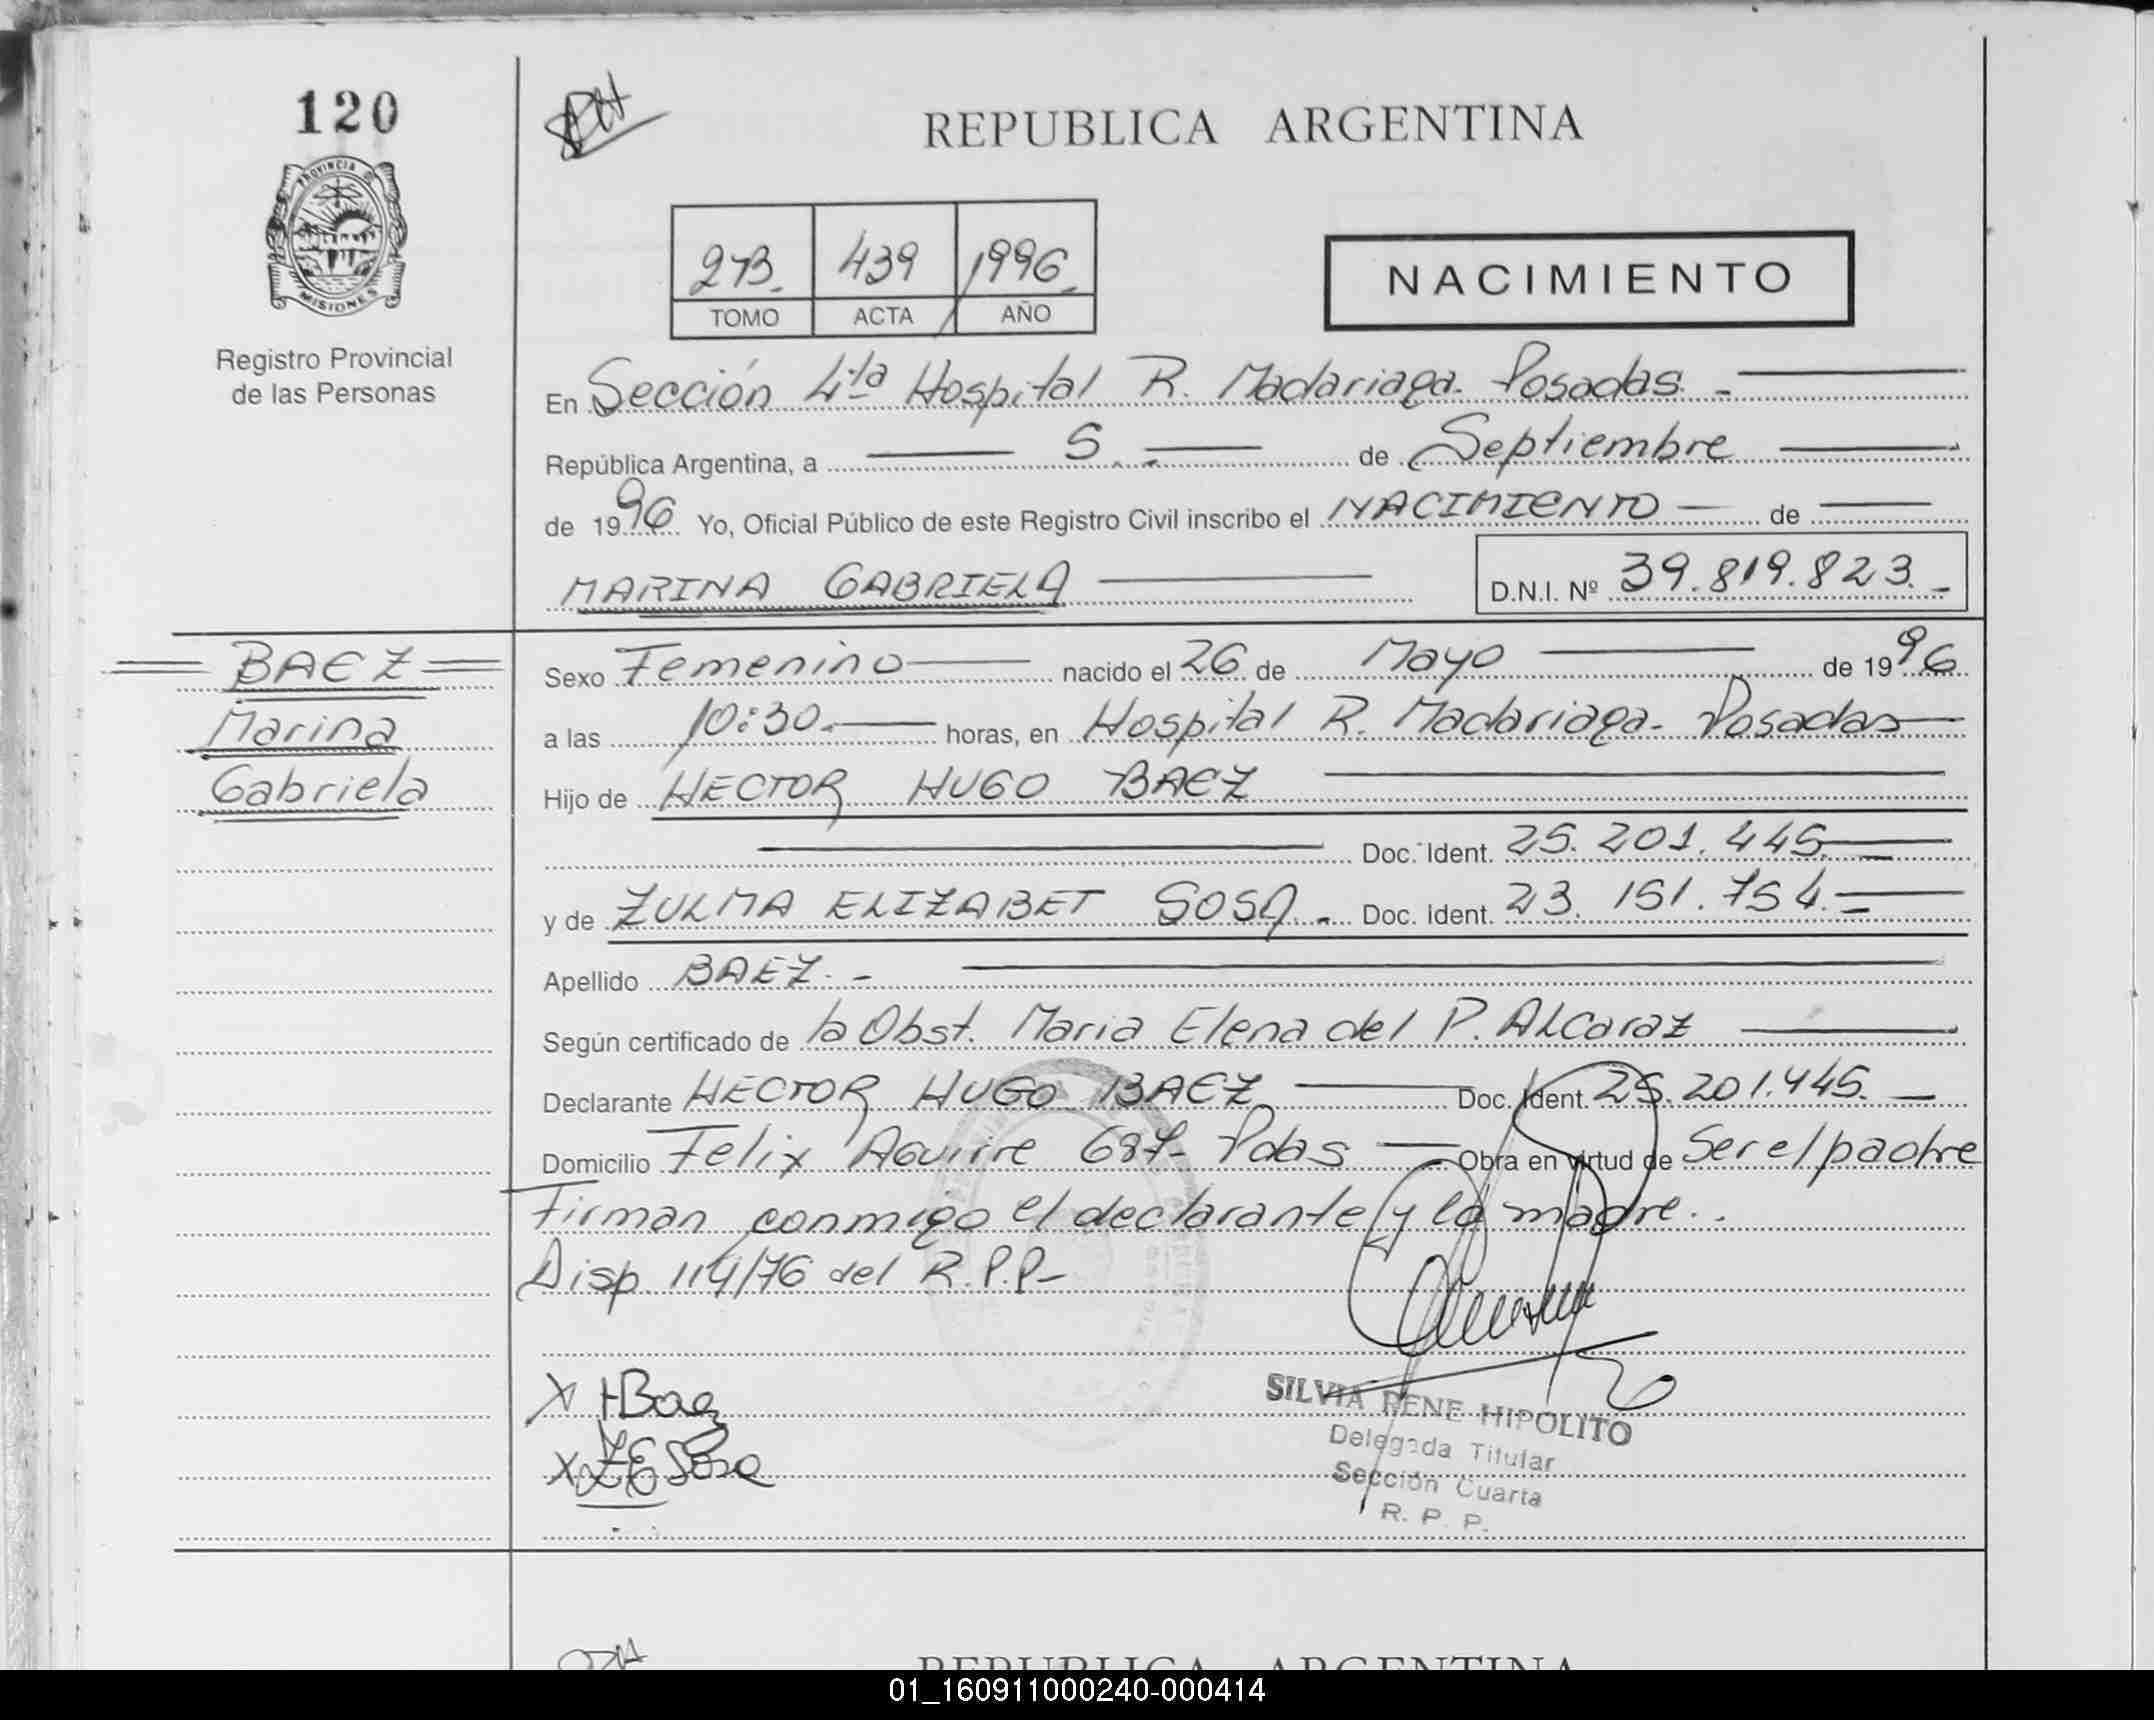 120
REPUBLICA ARGENTINA
PROVINCIA DE
MISIONES
Registro Provincial
de las Personas
273. 439 1996.
TOMO ACTA AÑO
NACIMIENTO
En Sección 4ta Hospital R. Madariaga. Posadas. -
República Argentina, a 5. - de Septiembre
de 1996. Yo, Oficial Público de este Registro Civil inscribo el NACIMIENTO de
MARINA GABRIELA D.N.I. Nº 39.819.823. -
BAEZ
Marina
Gabriela
Sexo Femenino nacido el 26 de Mayo de 1996.
a las 10:30. horas, en Hospital R. Madariaga- Posadas
Hijo de HECTOR HUGO BAEZ
Doc. Ident. 25.201.445.
y de ZULMA ELIZABET SOSA. - Doc. Ident. 23.151.754.
Apellido BAEZ. -
Según certificado de la Obst. Maria Elena del P. Alcaraz
Declarante HECTOR HUGO BAEZ Doc. Ident. 25.201.445.
Domicilio Felix Aguirre 687- Pdas Obra en virtud de Ser el padre
Firman conmigo el declarante y la madre..
Disp. 114/76 del R.P.P-
X HBaez
X ZESosa
SILVIA RENE HIPOLITO
Delegada Titular
Sección Cuarta
R. P. P.
REPUBLICA ARGENTINA
01_160911000240-000414